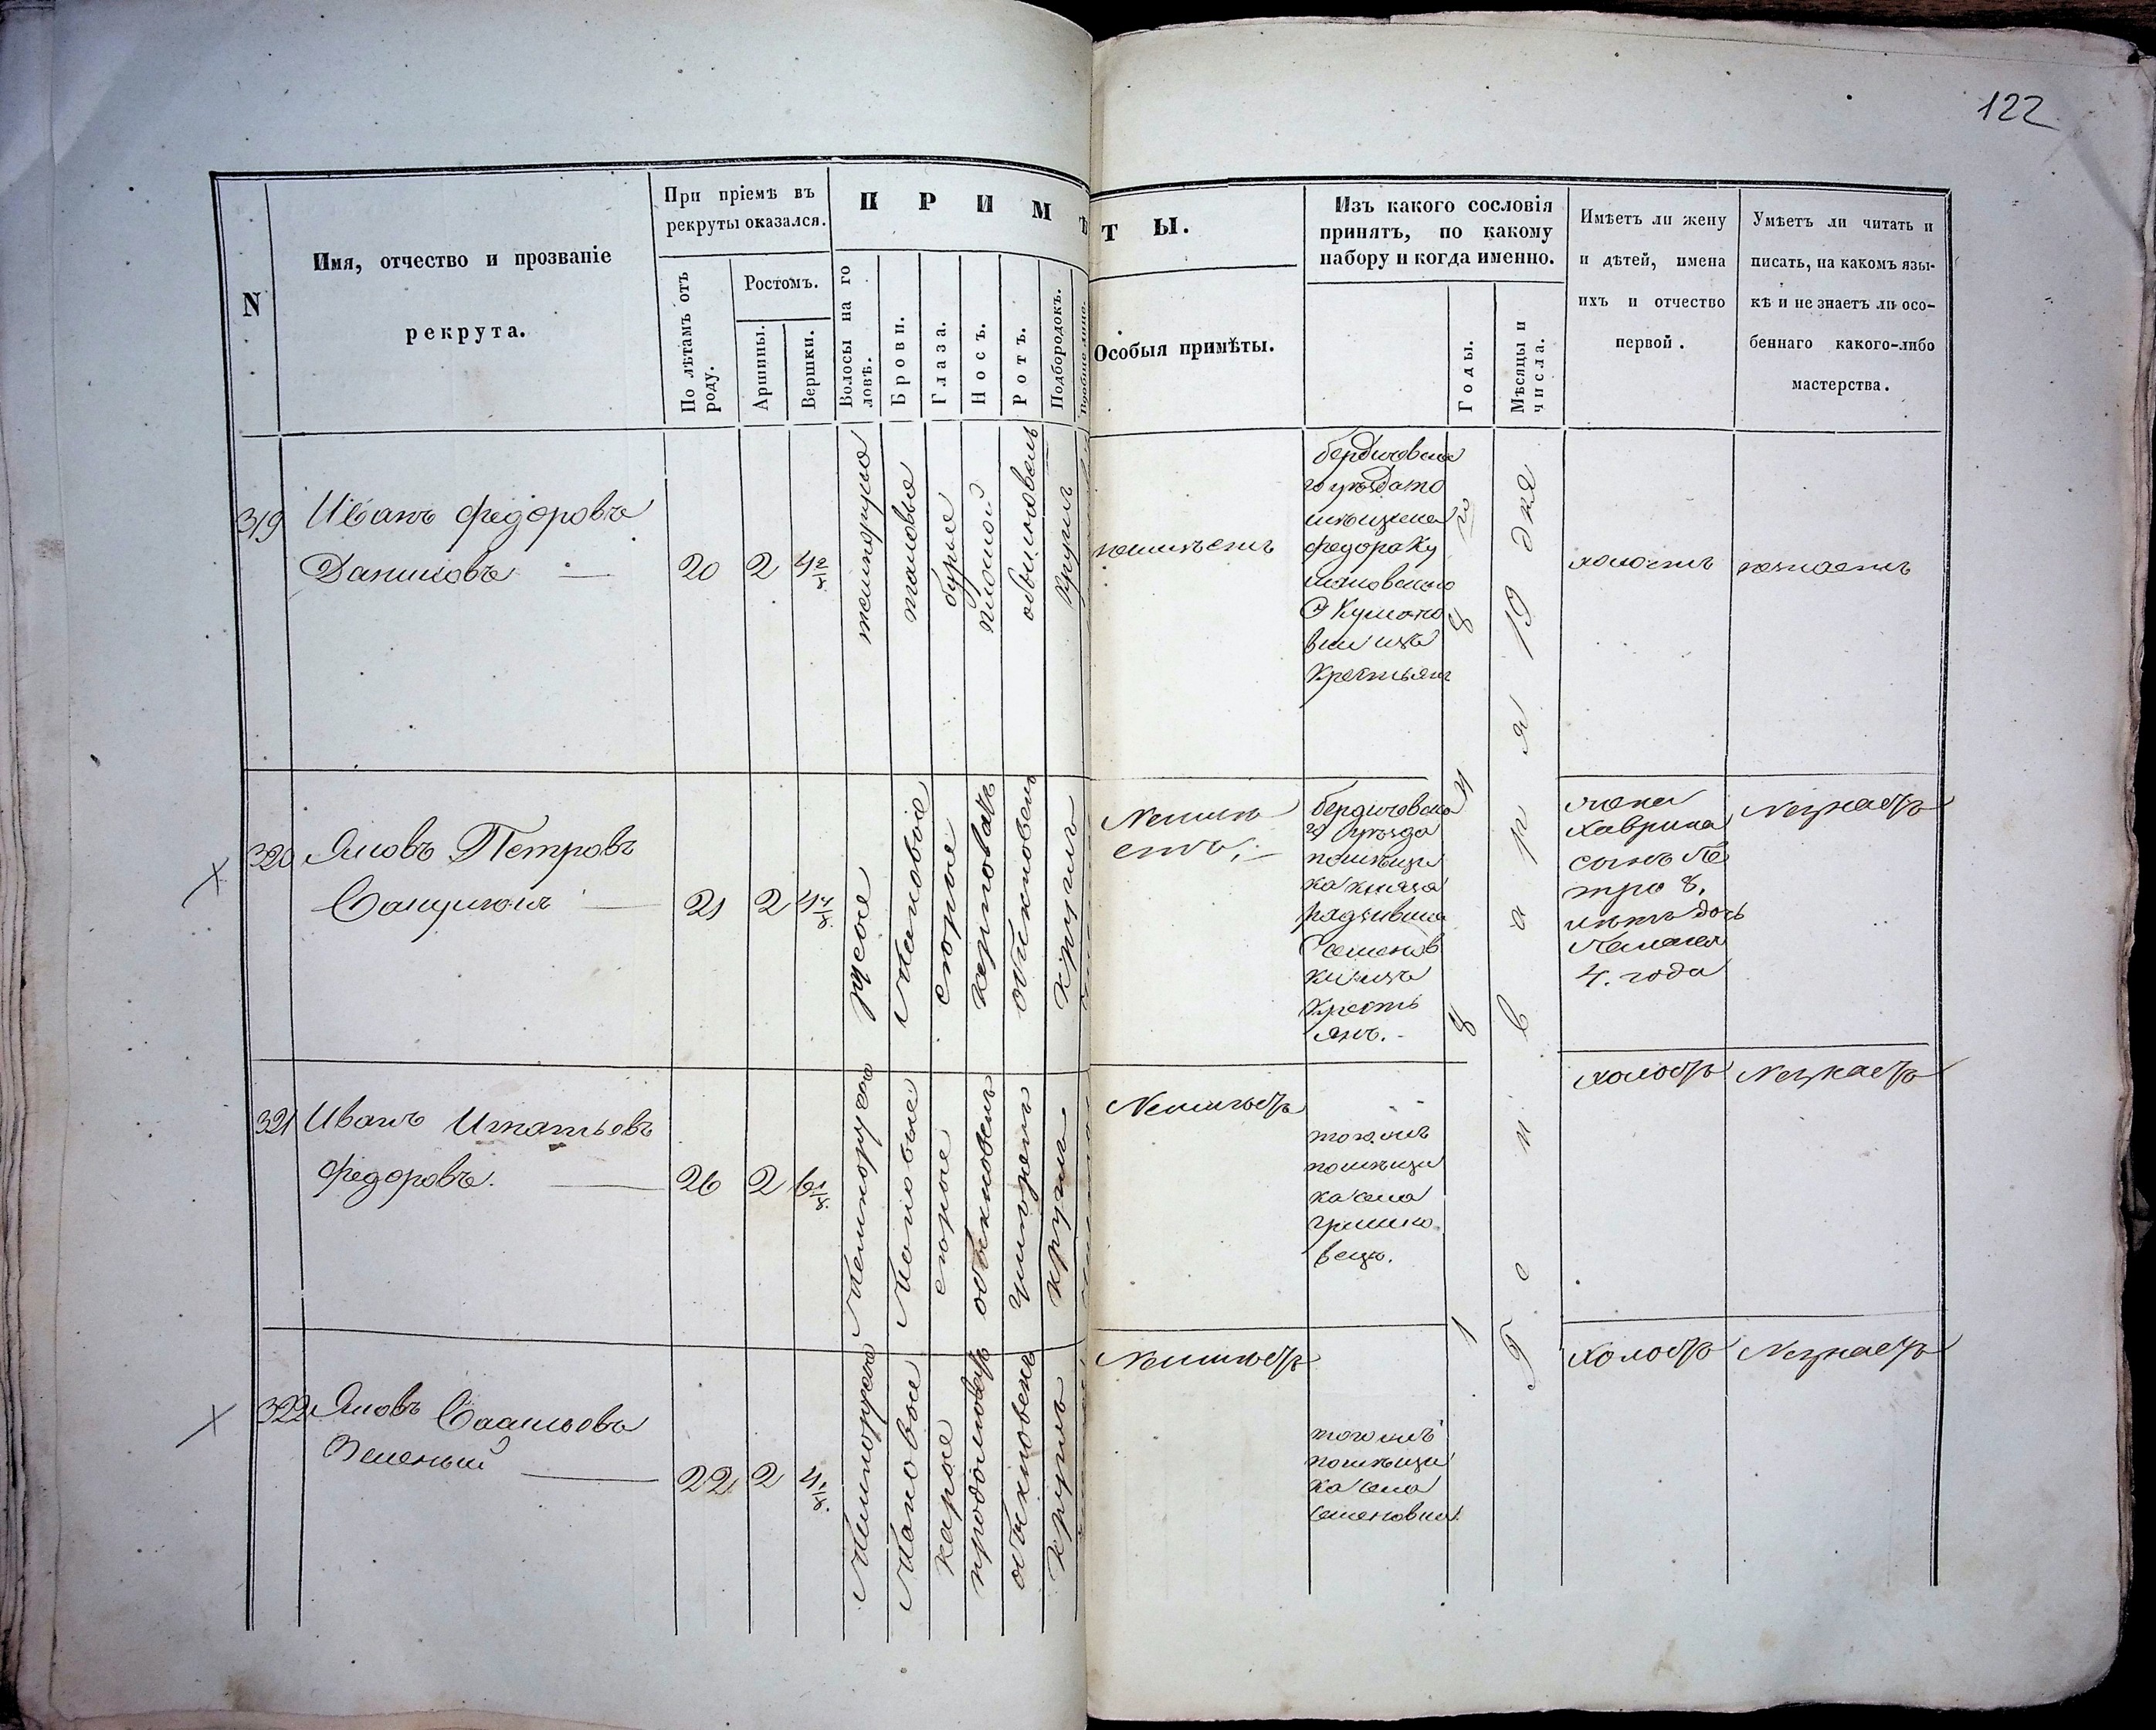 122
N
Имя, отчество и прозваніе
рекрута.
При пріемѣ въ
рекруты оказался.
По лѣтамъ отъ
роду.
Ростомъ.
Аршины.
Вершки.
П Р И М Ѣ
Волосы на го
ловѣ.
Брови.
Глаза.
Носъ.
Ротъ.
Подбородокъ.
Вообще лице.
Т Ы.
Особыя примѣты.
Изъ какого сословія
принятъ, по какому
набору и когда именно.
Годы.
Мѣсяцы и
числа.
Имѣетъ ли жену
и дѣтей, имена
ихъ и отчество
первой.
Умѣетъ ли читать и
писать, на какомъ язы-
кѣ и не знаетъ ли осо-
беннаго какого-либо
мастерства.
319
Иванъ Федоровъ
20
2
4 2/8
темнорусые
таковые
бурые
плоской
обыкновенъ
кругилъ
неимѣетъ
бердичовска
го уѣзда по
мѣщика
федора
Кумано
вки изъ
крестьян
холостъ
незнаетъ
1 8 4 г
Генваря 19 дня
320
Яковъ Петровъ
21
2
4 4/8
русые
таковые
сюрые
керповатъ
обикновенъ
кругилъ
Неимѣ
етъ;
бердичовска
го уѣзда
помѣщи
ка князя
радзивила
Семенов
ки изъ
крестъ
янъ.
жена
Хаврина
сынъ Пе
тро 8.
лѣтъ дочь
4. года
Незнаетъ
321
Иванъ Игнатьевъ
Федоровъ.
26
2
6 1/8
Темнорусые
Таковые
сюрые
обыкновенъ
умѣренъ
кругилъ
Неимѣетъ
того жъ
помѣщи
ка села
гришко
вецъ.
холостъ
Незнаетъ
322
Яковъ
Зеленый
22
2
4 1/8
Темнорусые
Таковые
карые
продолговатъ
обыкновенъ
кругилъ
Неимѣетъ
того жъ
помѣщи
ка села
семеновки.
Холостъ
Незнаетъ